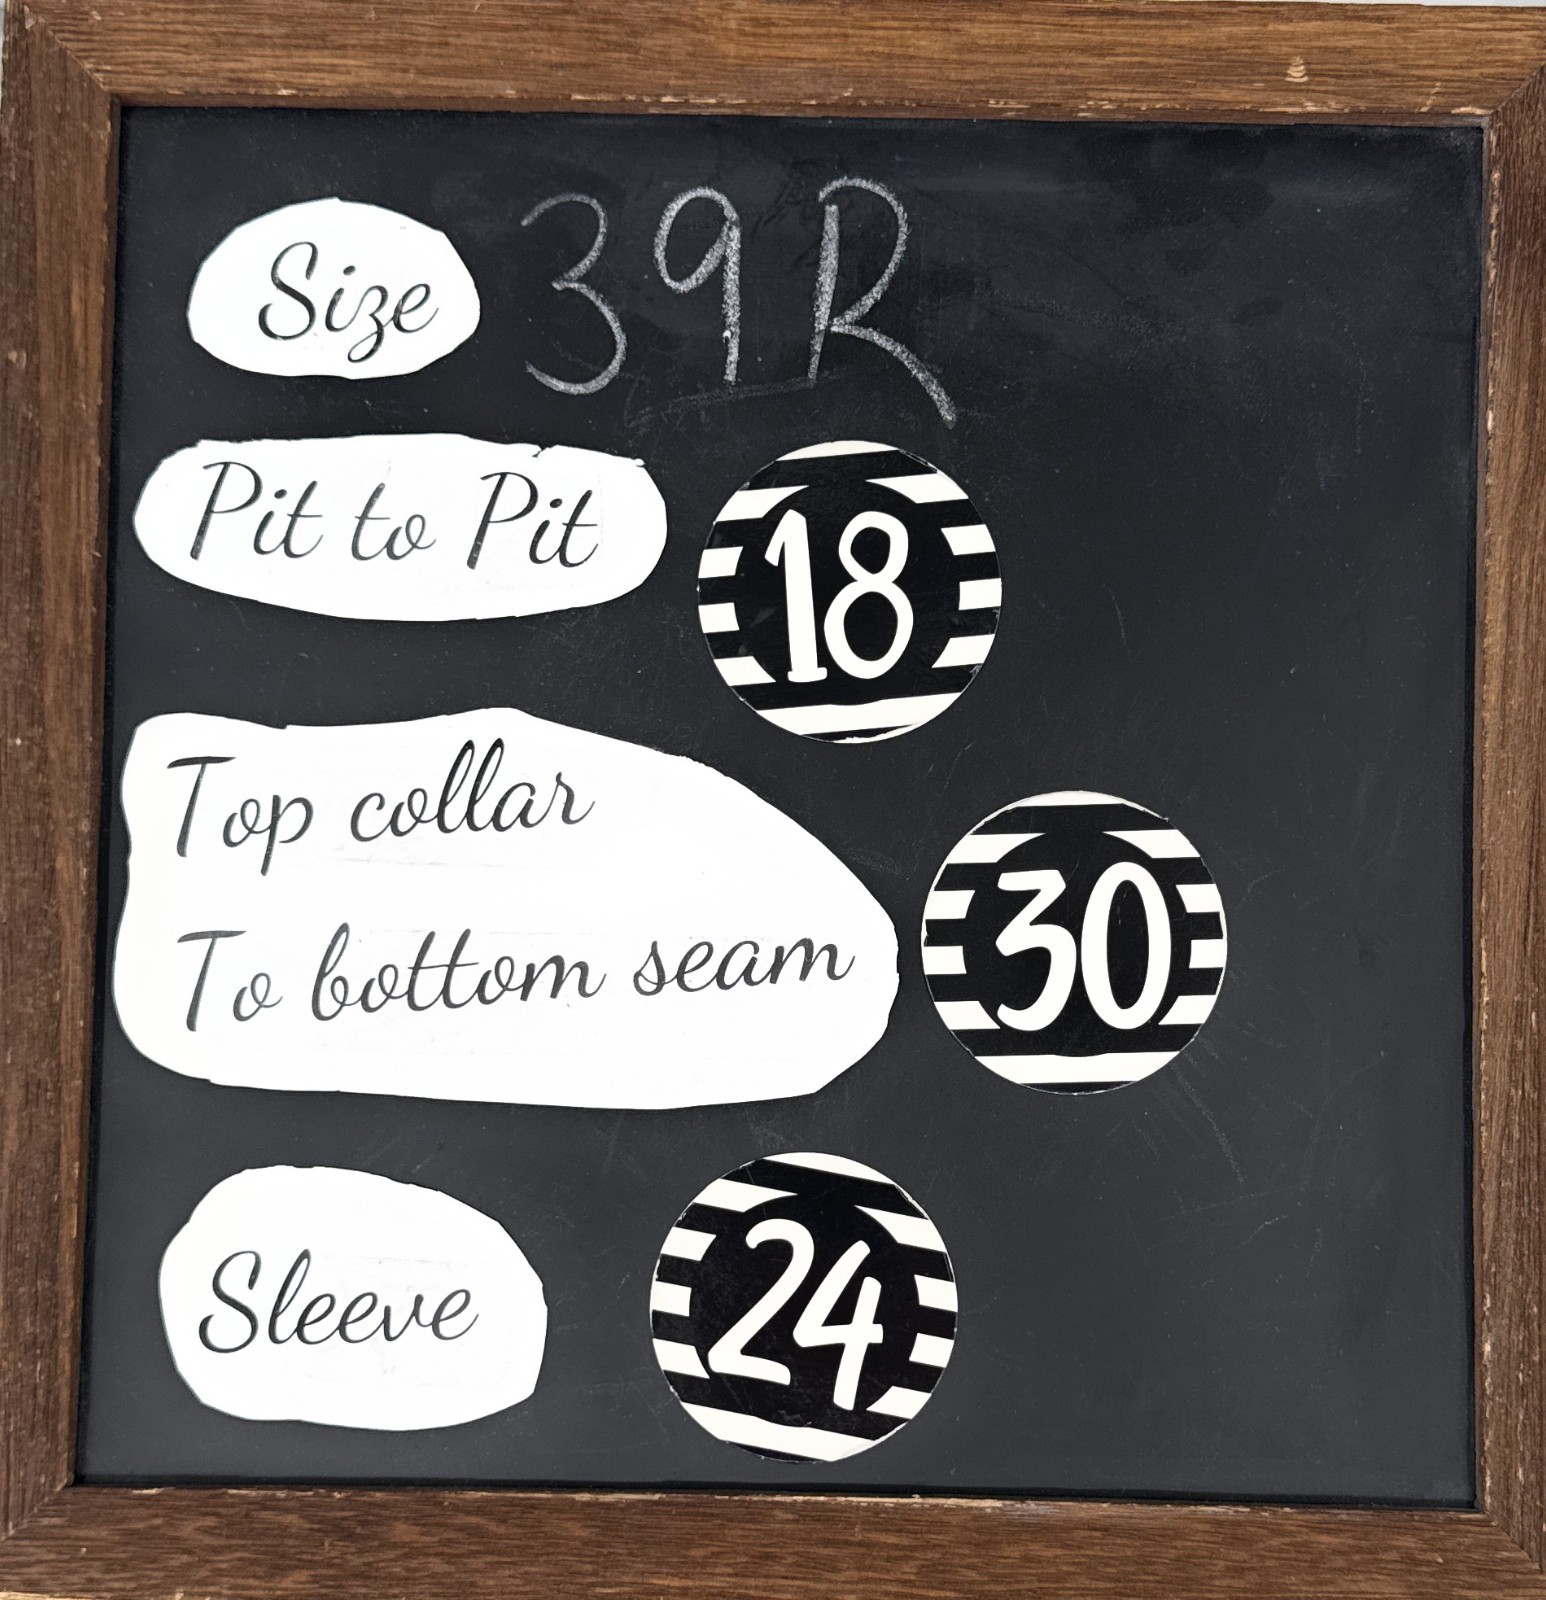 Size 39R
Pit to Pit 18
Top collar
To bottom seam 30
Sleeve 24